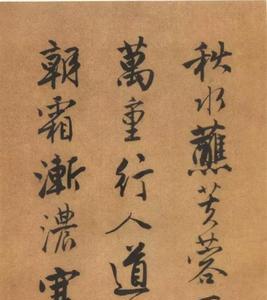 秋水蘸芙蓉
萬重行人道
朝霜漸濃寒